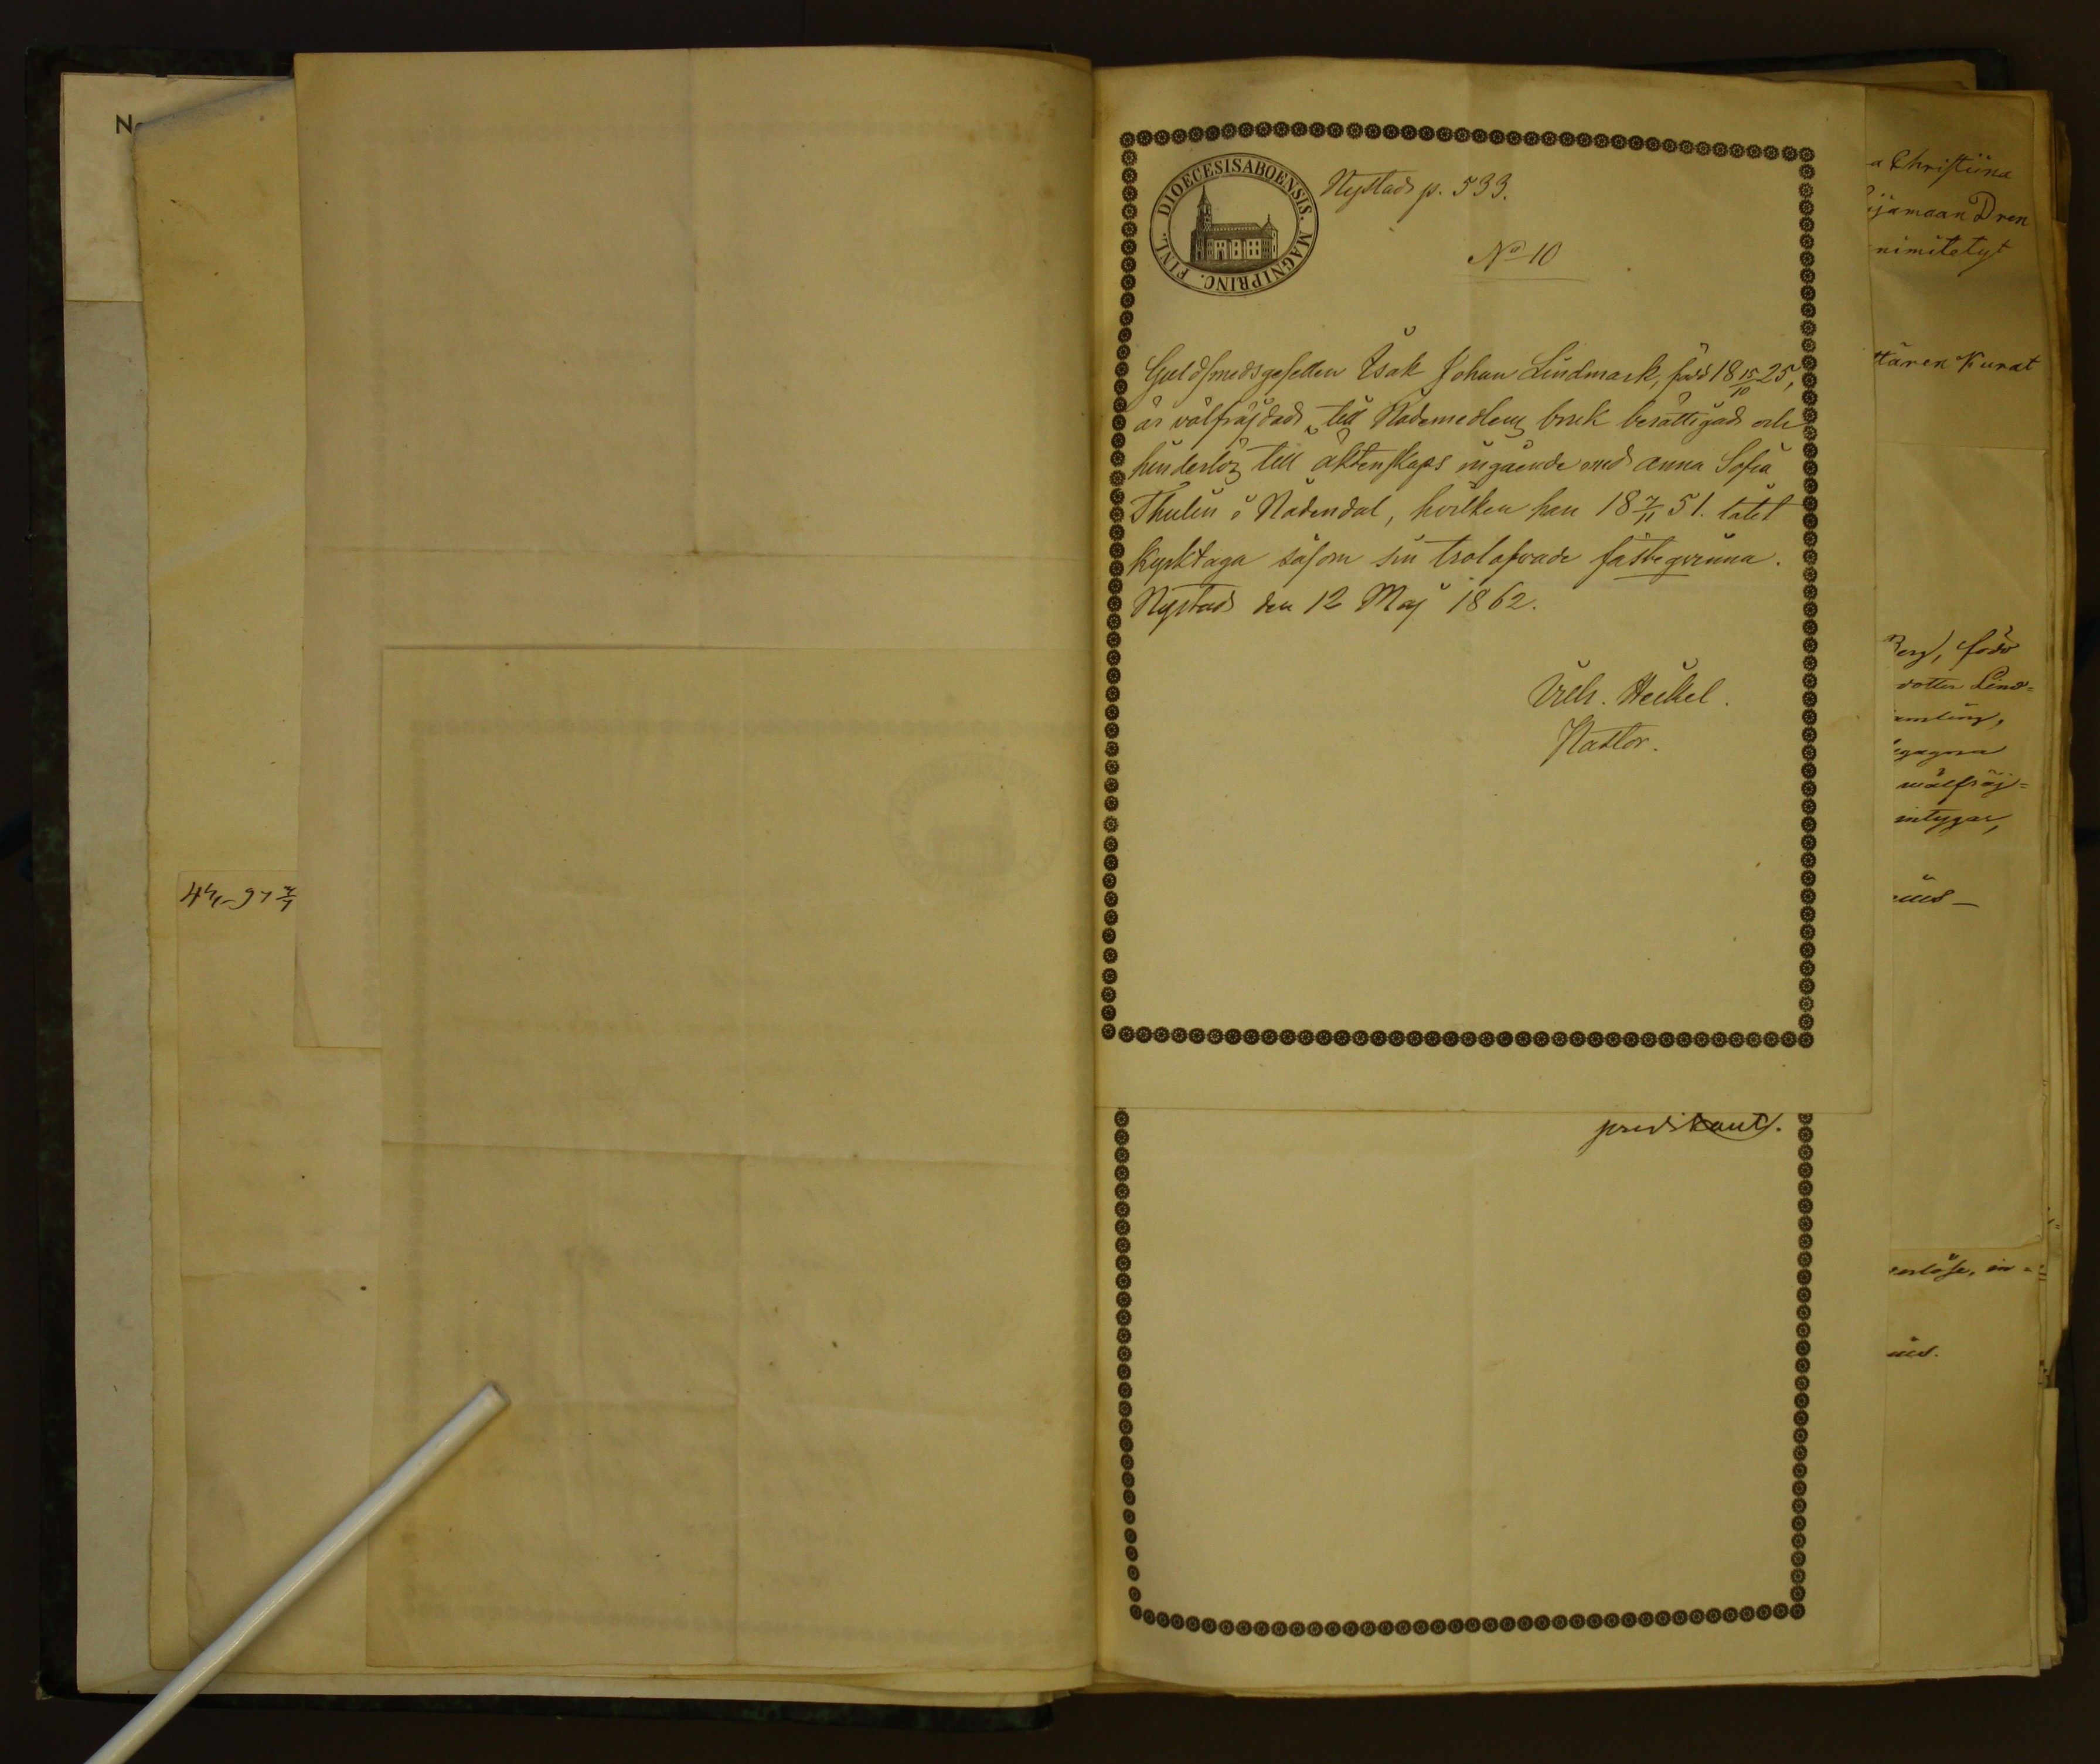 No
44-97
DIOECESISABOENSIS. MAGNIPRINC. FINL.
Nystads p. 533.
No 10
Guldsmedsgesellen Isak Johan Lindmark, född 18 15/10 25,
är välfräjdad, till Nådemedlens bruk berättigad och
hinderlös till äktenskaps ingående med Anna Sofia
Thulin i Nådendal, hvilken han 18 7/11 51. låtit
kyrktaga såsom sin trolofvade fästeqvinna.
Nystad den 12 Maj 1862.
Vilh. Heikel.
Pastor.
predikant.
a Christiina
ijamaan Dren
nimitetyt
ttären Kunat
Berg, född
dotter Lind=
amling,
egagna
wälfräj=
intygar,
erlöse, in=